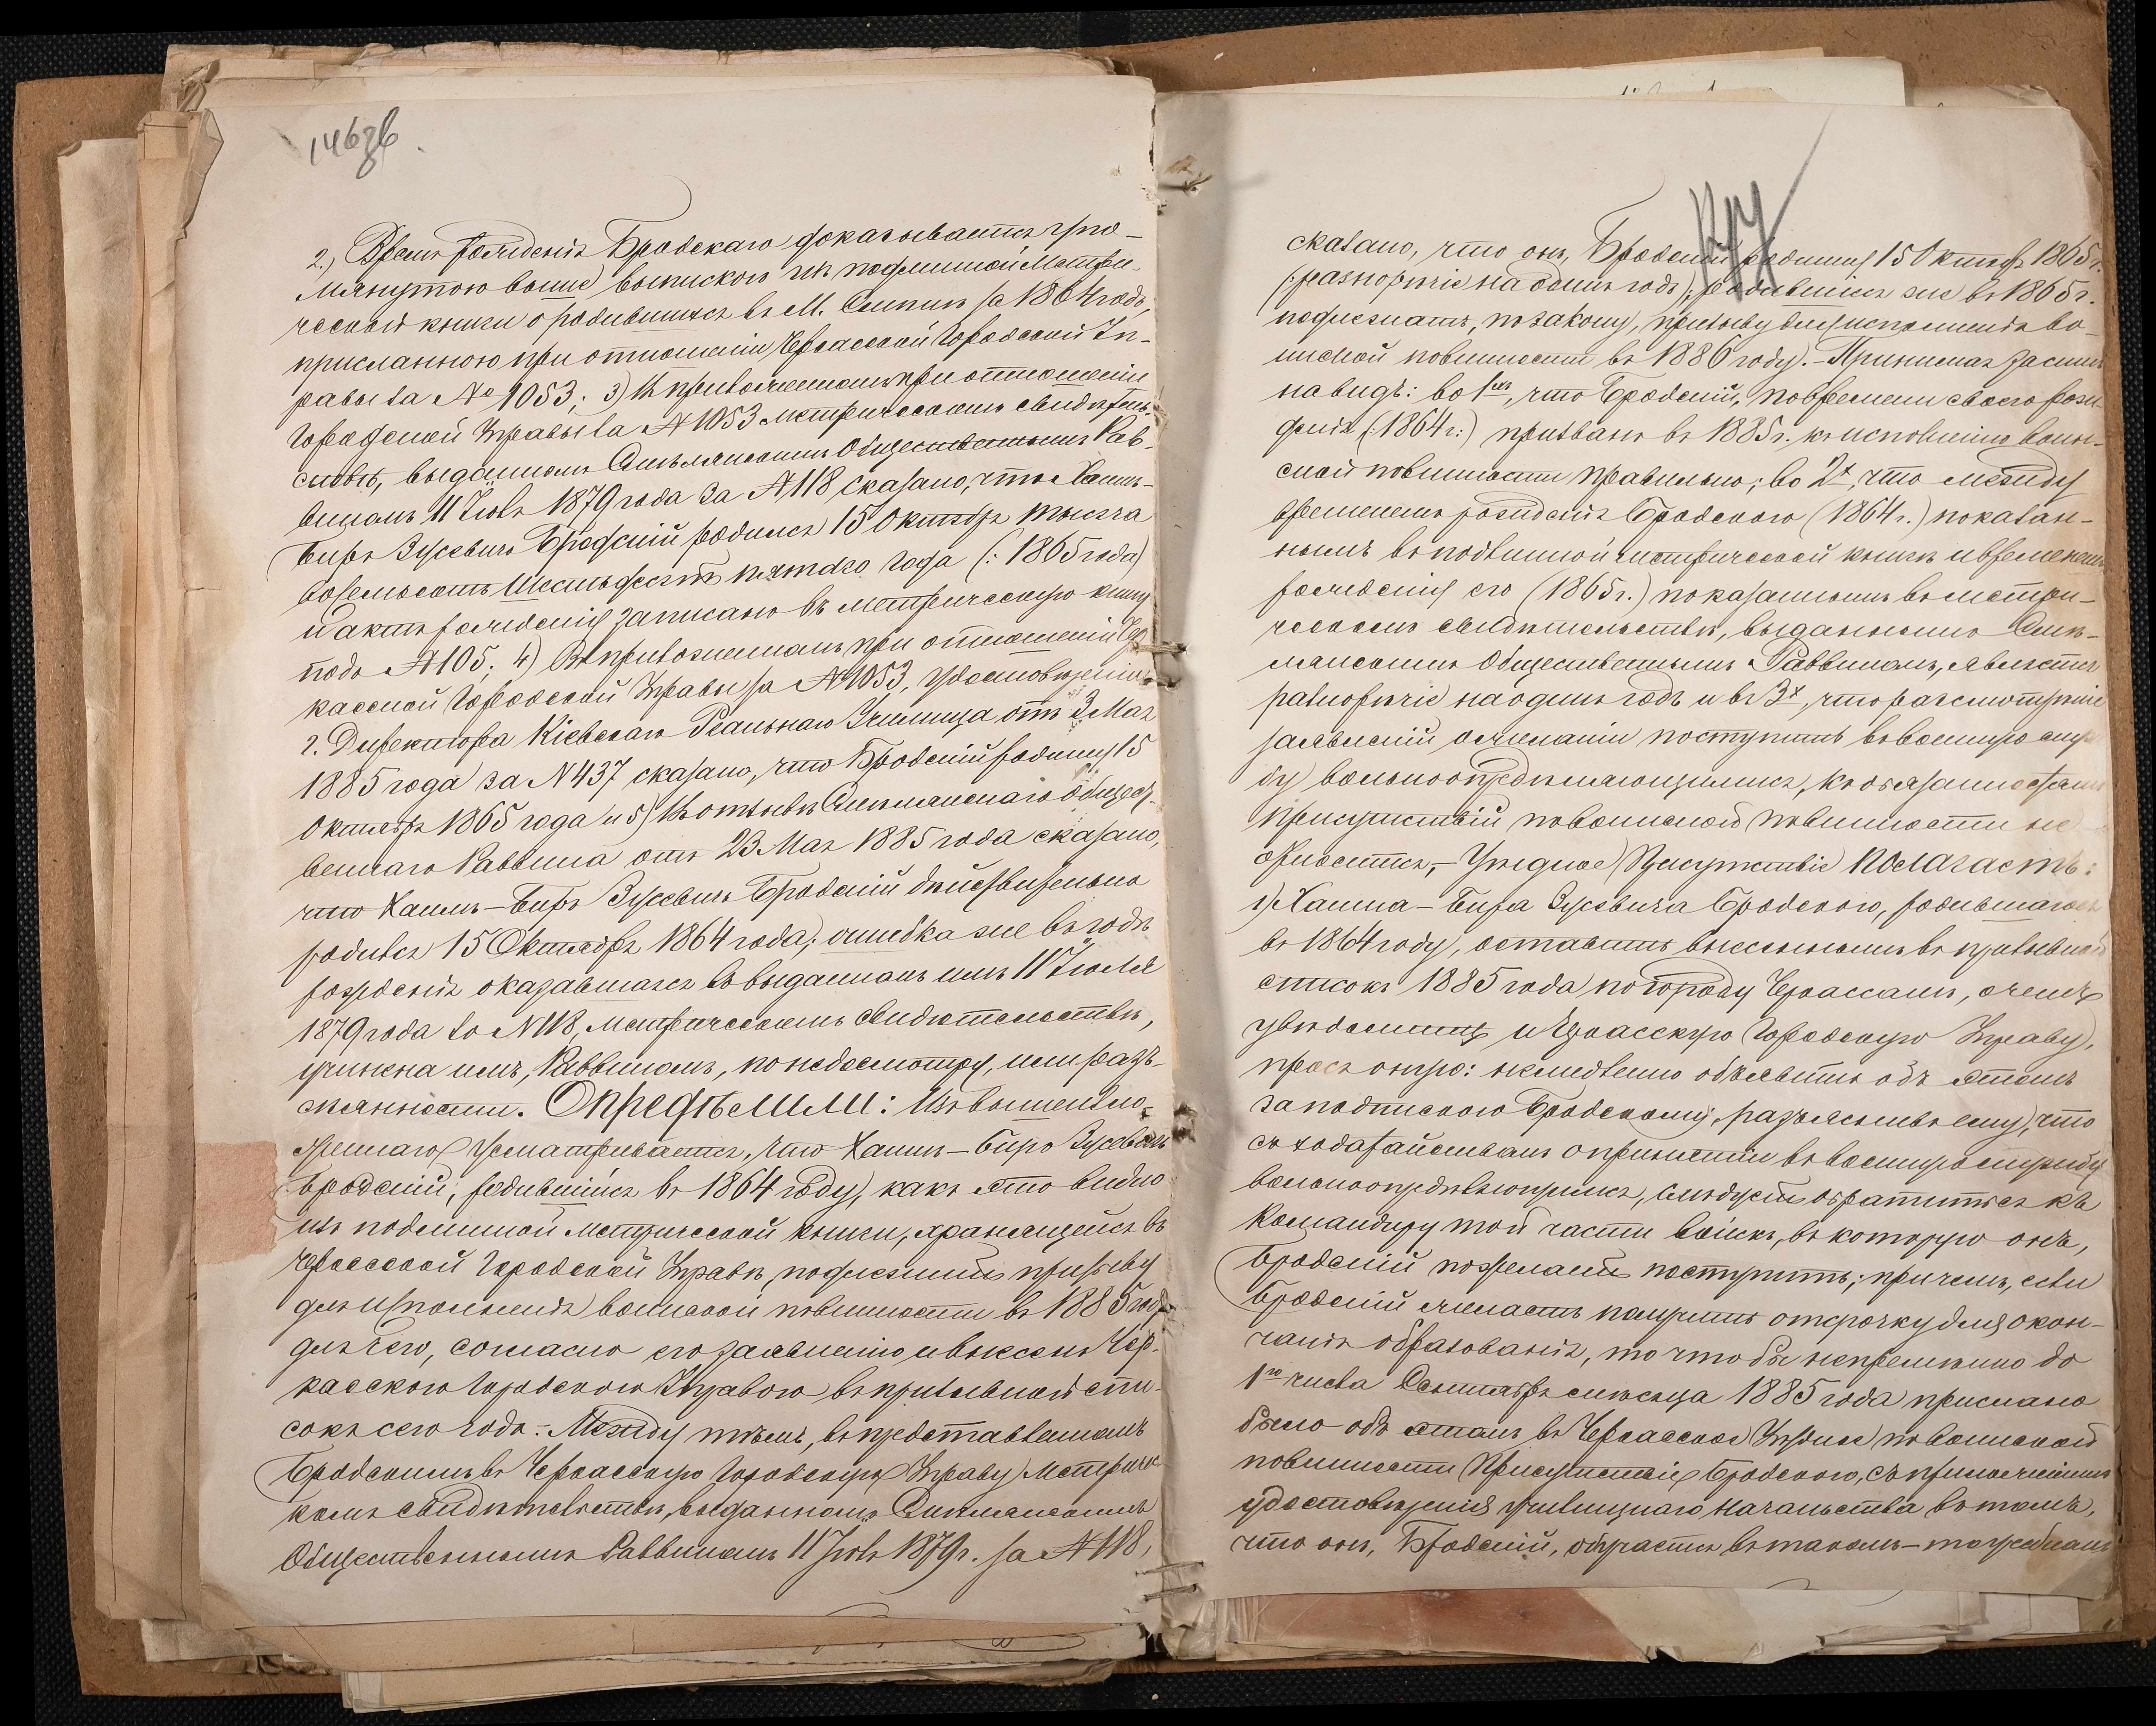 146зв
2.) Время рожденія Бродскаго доказывается упо-
мянутою выше выпискою изъ подлинной Метри-
ческой книги о родившихся въ М. за 1864 годъ,
присланною при отношеніи Черкасской Городской Уп-
равы за № 1053; 3) Въ приложенномъ при отношеніи
Городской Управы за № 1053 метрическомъ свидѣтель-
ствѣ, выданномъ Смѣлянскимъ Общественнымъ Рав-
виномъ 11 Іюля 1879 года за № 118 сказано, что Хаимъ-
Биръ Зусевичъ Бродскій родился 15 Октября тысяча
восемьсотъ шестьдесятъ пятаго года (: 1865 года)
и актъ рожденія записанъ въ метрическую книгу
подъ № 105; 4) Въ приложенномъ при отношеніи Чер-
касской Городской Управы за № 1053, удостовѣреніи
г. Директора Кіевскаго Реальнаго Училища отъ 3 Мая
1885 года за N 437 сказано, что Бродскій родился 15
Октября 1865 года и 5) Въ отзывѣ Смѣлянскаго Общест-
веннаго Раввина отъ 23 Мая 1885 года сказано,
что Хаимъ-Биръ Зусевичъ Бродскій дѣйствительно
родился 15 Октября 1864 года; ошибка же въ годѣ
рожденія оказавшаяся въ выданномъ имъ 11 Іюля
1879 года за N 118, метрическомъ свидѣтельствѣ,
учинена имъ, Раввиномъ, по недосмотру, или разсѣ-
янности. Опредѣлили: Изъ вышеизло-
женнаго усматривается, что Хаимъ-Биръ Зусевичъ
Бродскій, родившійся въ 1864 году, какъ это видно
изъ подлинной Метрической книги, хранящейся въ
Черкасской Городской Управѣ, подлежитъ призыву
для исполненія воинской повинности въ 1885 году
для чего, согласно его заявленію и внесенъ Чер-
касскою Городскою Управою въ призывной спи-
сокъ сего года. Между тѣмъ, въ представленномъ
Бродскимъ въ Черкасскую Городскую Управу Метричес-
комъ свидѣтельствѣ, выданномъ Смѣлянскимъ
Общественнымъ Раввиномъ 11 Іюля 1879 г. за № 118,
сказано, что онъ, Бродскій родился 15 Октября 1865 г.
(: разнорѣчіе на одинъ годъ), родившійся же въ 1865 г.
подлежитъ, по закону, призыву для исполненія во-
инской повинности въ 1886 году. Принимая засимъ
на видъ: во 1хъ, что Бродскій, по времени своего рож-
денія (: 1864 г.:) призванъ въ 1885 г. къ исполненію воин-
ской повинности правильно; во 2х, что между
временемъ рожденія Бродскаго (1864 г.) показан-
нымъ въ подлинной метрической книгѣ и временемъ
рожденія его (1865 г.) показаннымъ въ метри-
ческомъ свидѣтельствѣ, выданномъ Смѣ-
лянскимъ Общественнымъ Раввиномъ, является
разнорѣчіе на одинъ годъ и въ 3х, что разсмотрѣніе
заявленій о желаніи поступить въ военную служ-
бу вольноопредѣляющимися, къ обязанностямъ
присутствій по воинской повинности не
относится, Уѣздное Присутствіе Полагаетъ:
1) Хаима-Бира Зусевича Бродскаго, родившагося
въ 1864 году, оставить внесеннымъ въ призывной
списокъ 1885 года по городу Черкассамъ, о чемъ
увѣдомить и Черкасскую Городскую Управу,
прося оную: немедленно объявить объ этомъ
за подпискою Бродскому, разъяснивъ ему, что
съ ходатайствомъ о принятіи въ военную службу
вольноопредѣляющимся, слѣдуетъ обратиться къ
Командиру той части войскъ, въ которую онъ,
Бродскій пожелаетъ поступить; при чемъ, если
Бродскій желаетъ получить отсрочку для окон-
чанія образованія, то что бы непремѣнно до
1го числа Сентября мѣсяца 1885 года прислано
было объ этомъ въ Черкасское Уѣздное по воинской
повинности Присутствіе Бродскаго, съ приложеніемъ
удостовѣренія училищнаго начальства въ томъ,
что онъ, Бродскій, обучается въ такомъ-то учебномъ